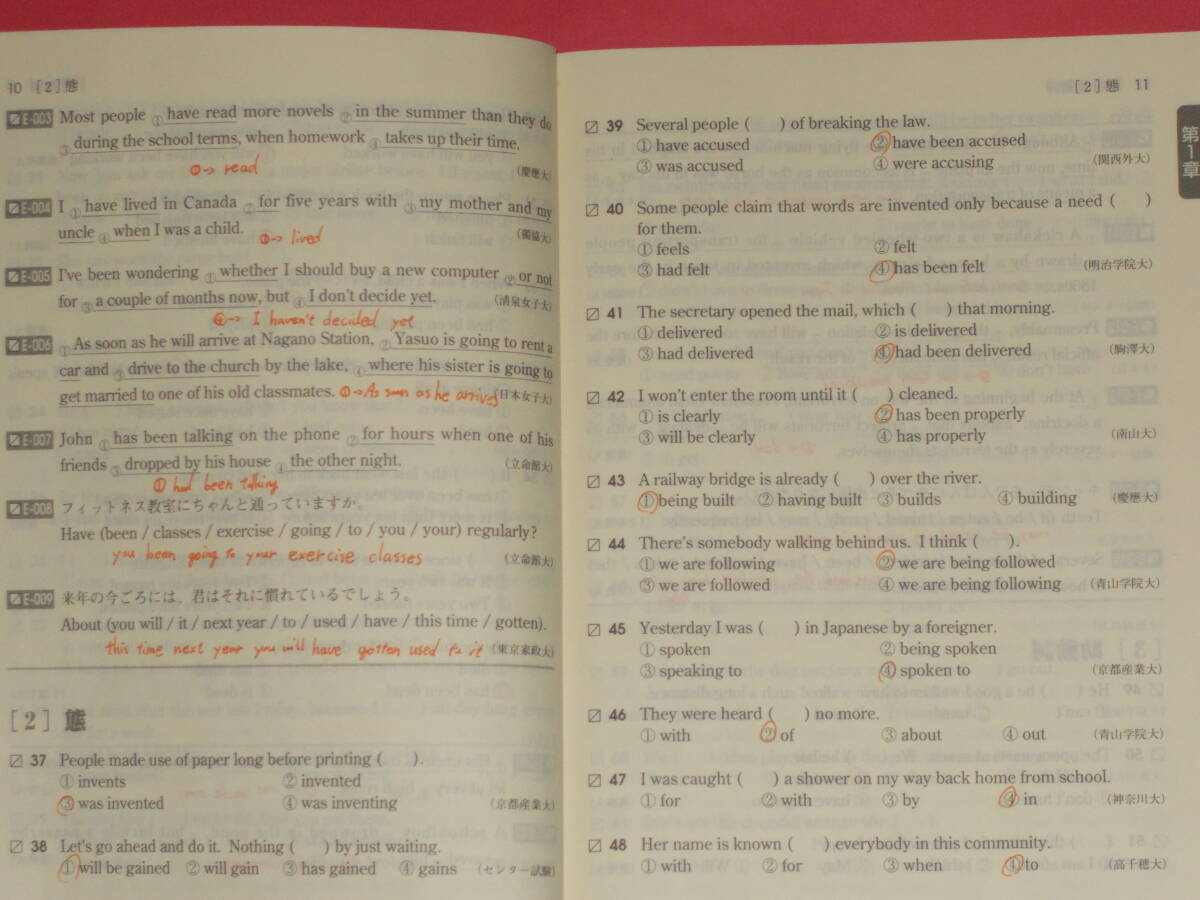 10 [2] 態
E-003 Most people ①have read more novels ②in the summer than they do
③during the school terms, when homework ④takes up their time.
①→ read (慶應大)
E-004 I ①have lived in Canada ②for five years with ③my mother and my
uncle ④when I was a child. (獨協大)
①→ lived
E-005 I've been wondering ①whether I should buy a new computer ②or not
for ③a couple of months now, but ④I don't decide yet. (清泉女子大)
④→ I haven't decided yet
E-006 ①As soon as he will arrive at Nagano Station, ②Yasuo is going to rent a
car and ③drive to the church by the lake, ④where his sister is going to
get married to one of his old classmates. ①→As soon as he arrives (日本女子大)
E-007 John ①has been talking on the phone ②for hours when one of his
friends ③dropped by his house ④the other night. (立命館大)
① had been talking
E-008 フィットネス教室にちゃんと通っていますか。
Have (been / classes / exercise / going / to / you / your) regularly?
you been going to your exercise classes (立命館大)
E-009 来年の今ごろには、君はそれに慣れているでしょう。
About (you will / it / next year / to / used / have / this time / gotten).
this time next year you will have gotten used to it (東京家政大)
[2] 態
37 People made use of paper long before printing ( ).
① invents ② invented
③ was invented ④ was inventing (京都産業大)
38 Let's go ahead and do it. Nothing ( ) by just waiting.
① will be gained ② will gain ③ has gained ④ gains (センター試験)
[2] 態 11
第1章
39 Several people ( ) of breaking the law.
① have accused ② have been accused
③ was accused ④ were accusing (関西外大)
40 Some people claim that words are invented only because a need ( )
for them.
① feels ② felt
③ had felt ④ has been felt (明治学院大)
41 The secretary opened the mail, which ( ) that morning.
① delivered ② is delivered
③ had delivered ④ had been delivered (駒澤大)
42 I won't enter the room until it ( ) cleaned.
① is clearly ② has been properly
③ will be clearly ④ has properly (南山大)
43 A railway bridge is already ( ) over the river.
① being built ② having built ③ builds ④ building (慶應大)
44 There's somebody walking behind us. I think ( ).
① we are following ② we are being followed
③ we are followed ④ we are being following (青山学院大)
45 Yesterday I was ( ) in Japanese by a foreigner.
① spoken ② being spoken
③ speaking to ④ spoken to (京都産業大)
46 They were heard ( ) no more.
① with ② of ③ about ④ out (青山学院大)
47 I was caught ( ) a shower on my way back home from school.
① for ② with ③ by ④ in (神奈川大)
48 Her name is known ( ) everybody in this community.
① with ② for ③ when ④ to (高千穂大)